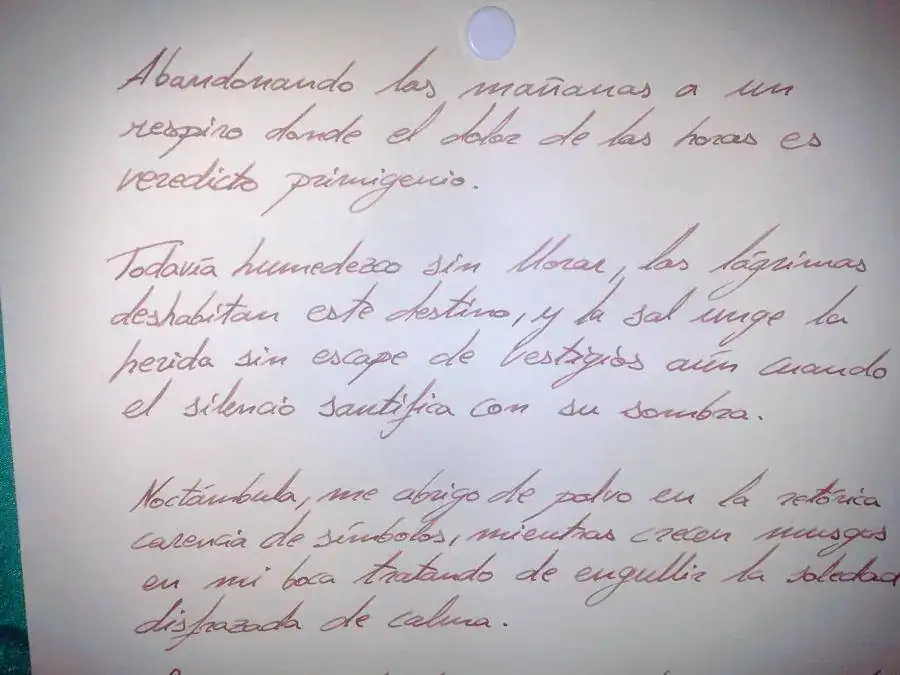 Abandonando las mañanas a un
respiro donde el dolor de las horas es
veredicto primigenio.
Todavía humedezco sin llorar, las lágrimas
deshabitan este destino, y la sal unge la
herida sin escape de vestigios aún cuando
el silencio santifica con su sombra.
Noctámbula, me abrigo de polvo en la retórica
carencia de símbolos, mientras crecen musgos
en mi boca tratando de engullir la soledad
disfrazada de calma.